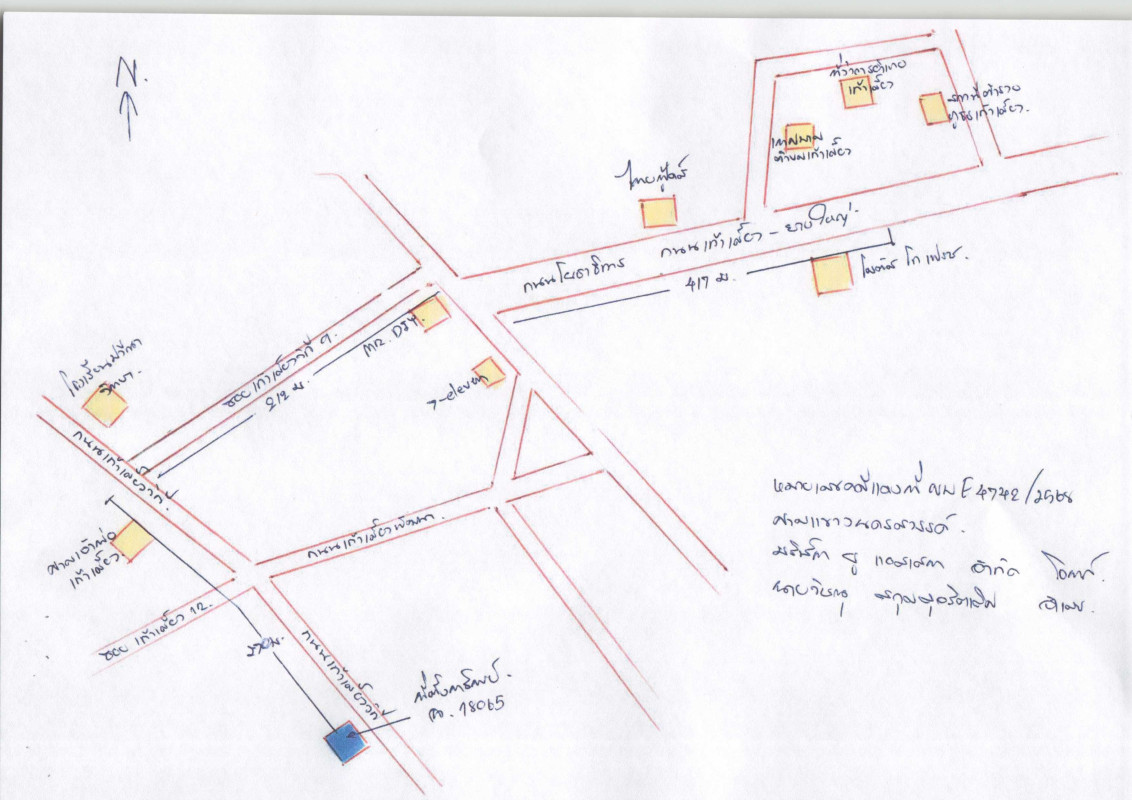 N.
ที่ว่าการอำเภอ
เก้าเลี้ยว
สถานีตำรวจ
ภูธรเก้าเลี้ยว.
เทศบาล
ตำบลเก้าเลี้ยว
ไทยฟู้ดส์
ถนนโยธาธิการ
ถนนเก้าเลี้ยว - ยางใหญ่.
417 ม.
โลตัส โก เฟรช.
MR. DIY.
7-eleven
ซอย เก้าเลี้ยวที่ 9.
212 ม
โรงเรียน
ถนนเก้าเลี้ยว
ศาลเจ้าพ่อ
เก้าเลี้ยว
ถนนเก้าเลี้ยวพัฒนา
ซอย เก้าเลี้ยว 12.
270 ม.
ถนนเก้าเลี้ยว
ที่ตั้งทรัพย์.
ฉ. 18065
หมายเลขคดีแดงที่ ผบ E4742/2568
ศาลแขวงนครสวรรค์.
บริษัท จำกัด โจทก์.
นาย จำเลย.